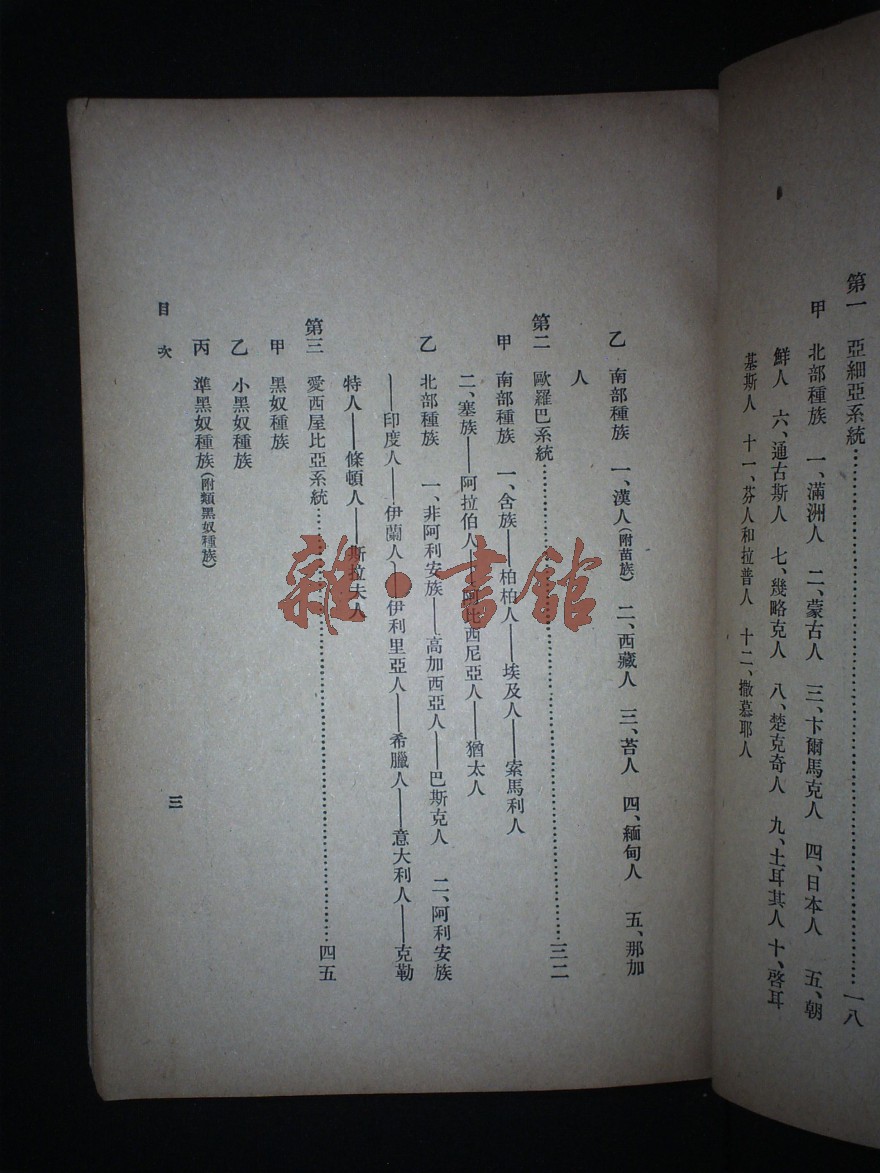 第一　亞細亞系統……………………………一八
甲　北部種族　一、滿洲人　二、蒙古人　三、卞爾馬克人　四、日本人　五、朝
鮮人　六、通古斯人　七、幾略克人　八、楚克奇人　九、土耳其人　十、啓耳
基斯人　十一、芬人和拉普人　十二、撒慕耶人
乙　南部種族　一、漢人(附苗族)　二、西藏人　三、苔人　四、緬甸人　五、那加
人
第二　歐羅巴系統……………………………三二
甲　南部種族　一、含族——柏柏人——埃及人——索馬利人
二、塞族——阿拉伯人——阿比西尼亞人——猶太人
乙　北部種族　一、非阿利安族——高加西亞人——巴斯克人　二、阿利安族
——印度人——伊蘭人——伊利里亞人——希臘人——意大利人——克勒
特人——條頓人——斯拉夫人
第三　愛西屋比亞系統……………………………四五
甲　黑奴種族
乙　小黑奴種族
丙　準黑奴種族(附類黑奴種族)
目次
三
雜·書館